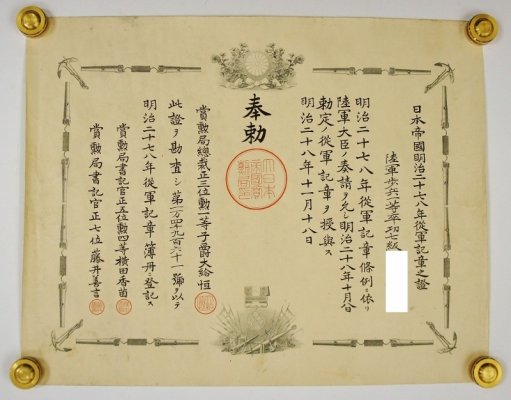 日本帝國明治二十七八年從軍記章之證
陸軍歩兵一等卒功七級
明治二十七八年從軍記章條例ニ依リ
陸軍大臣ノ奏請ヲ允シ明治二十八年十月八日
勅定ノ從軍記章ヲ授與ス
明治二十八年十一月十八日
奉勅
賞勲局總裁正三位勲一等子爵大給恒
此證ヲ勘査シ第 万四千九百六十一號ヲ以テ
明治二十七八年從軍記章簿冊ニ登記ス
賞勲局書記官正五位勲四等横田香苗
賞勲局書記官正七位藤井善言